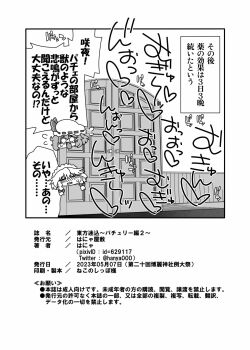 その後
薬の効果は3日3晩
続いたという
咲夜!
パチェの部屋から
獣のような
悲鳴がずっと
聞こえるんだけど
大丈夫なの!?
いや…あの…
その……
誌名 / 東方速込~パチェリー編2~
発行元 / はにゃ屋敷
著者 / はにゃ
(pixivID:id=629117
Twitter:@hanya000)
発行日 / 2023年05月07日(第二十回博麗神社例大祭)
印刷・製本 / ねこのしっぽ様
<お願い>
●本誌は成人向けです。未成年者の方の購読、閲覧、譲渡を禁止します。
●発行元の許可なく本誌の一部、又は全部の複製、複写、転載、翻訳、
データ化の一切を禁止します。